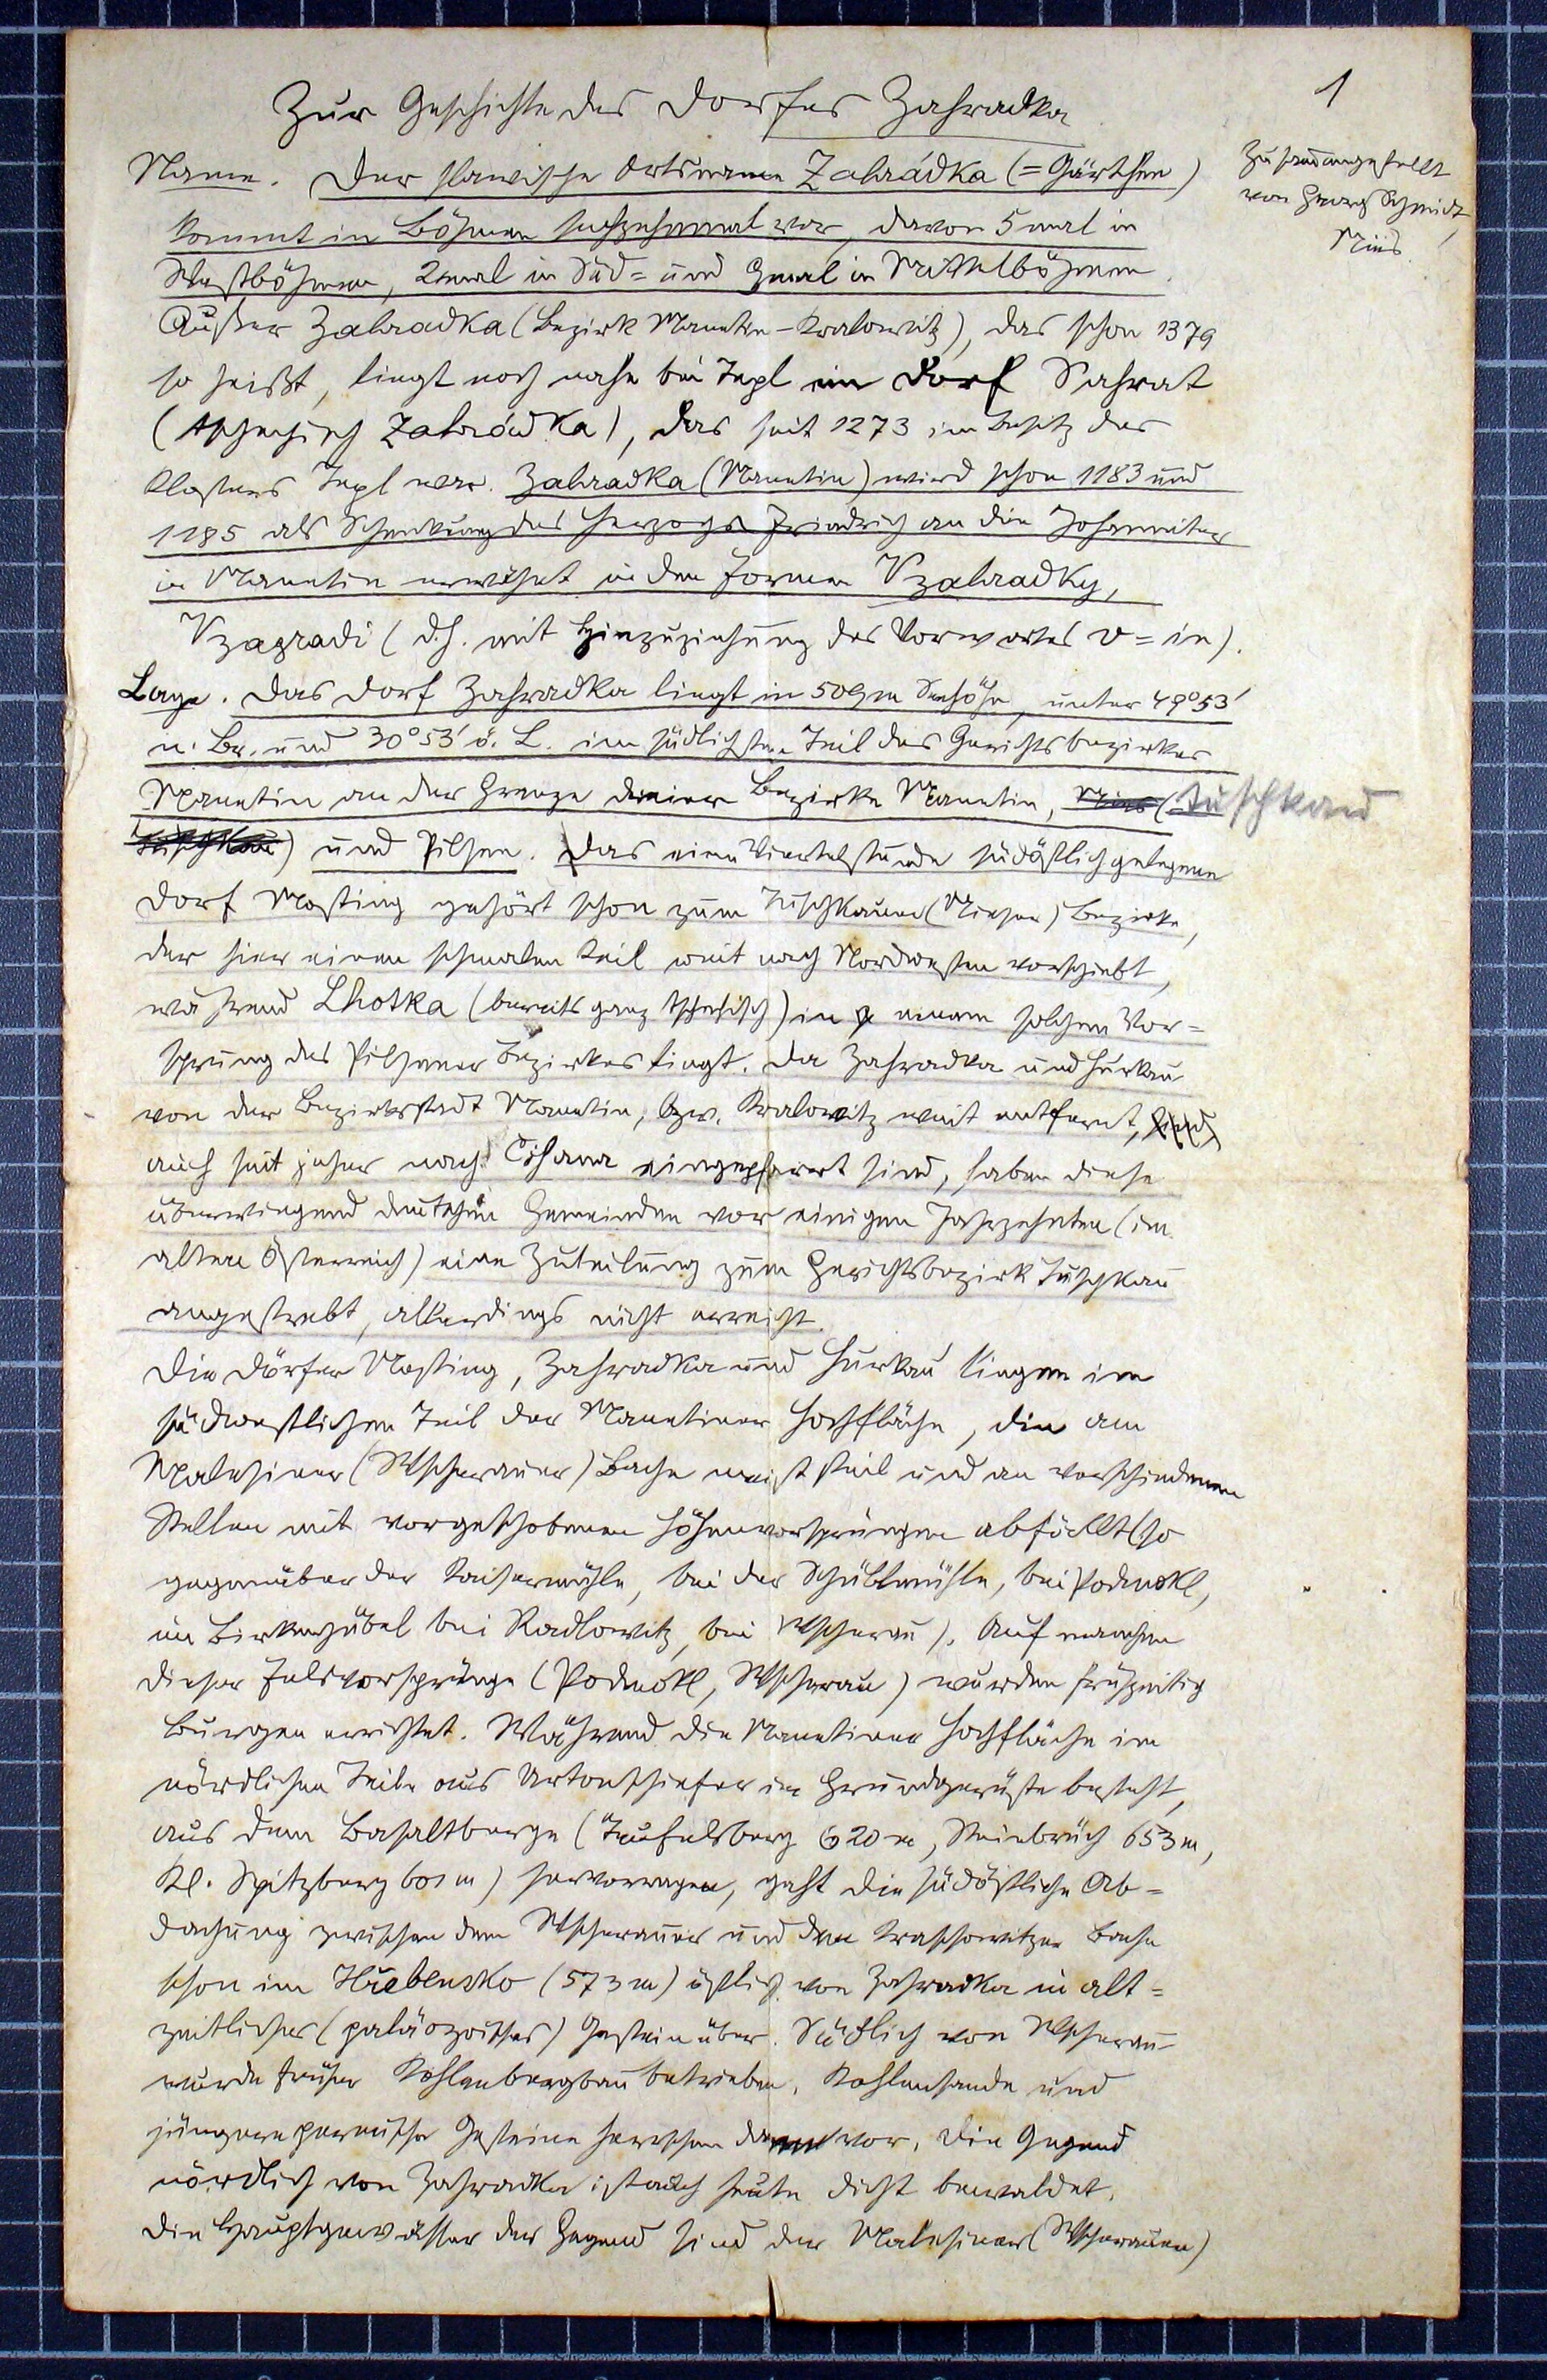 1
Zur Geschichte des Dorfes Zahradka
Zusam̄engestellt
von Georg Schmidt,
Mies.
Name. Der slawische Ortsname Zahrádka (= Gärtchen)
kommt in Böhmen sechzehnmal vor, davon 5 mal in
Westböhmen, 2mal in Süd= und 9mal in Mittelböhmen.
Außer Zahradka (Bezirk Manetin-Kralowitz), das schon 1379
so heißt, liegt noch nahe bei Tepl ein Dorf Sahrat
(tschechisch Zahrádka), das seit 1273 im Besitz des
Klosters Tepl war. Zahradka (Manetin) wird schon 1183 und
1185 als Schenkung des Herzogs Friedrich an die Johanniter
in Manetin erwähnt in den Formen Vzahradky,
Vzagradi (d.h. mit Hinzuziehung des Vorwortes v = in).
Lage. Das Dorf Zahradka liegt in 509m Seehöhe, unter 49°53'
n. Br. und 30°53' ö. L. im südlichsten Teil des Gerichtsbezirkes
Manetin an der Grenze dreier Bezirke Manetin, Mies (Tuschkau
Tuschkau) und Pilsen. Das eine Viertelstunde südöstlich gelegene
Dorf Nosting gehört schon zum Tuschkauer (Mieser) Bezirke,
der hier einen schmalen Keil weit nach Nordwesten vorschiebt,
während Lhotka (bereits ganz tschechisch) in einem solchen Vor=
sprung des Pilsener Bezirkes liegt. Da Zahradka und Hurkau
von der Bezirksstadt Manetin, bzw. Kralowitz weit entfernt, sind
auch seit jeher nach Tschana eingepfarrt sind, haben diese
überwiegend deutschen Gemeinden vor einigen Jahrzehnten (im
alten Österreich) eine Zuteilung zum Gerichtsbezirk Tuschkau
angestrebt, allerdings nicht erreicht.
Die Dörfer Nosting, Zahradka und Hurkau liegen im
südwestlichen Teil der Manetiner Hochfläche, die am
Malesiner (Wscherauer) Bache meist steil und an verschiedenen
Stellen mit vorgeschobenen Höhenvorsprüngen abfällt (so
gegenüber der Kaisermühle, bei der Schüblmühle, bei Podmokl,
im Birkenhübel bei Radlowitz, bei Wscherau). Auf manchen
dieser Felsvorsprünge (Podmokl, Wscherau) wurden frühzeitig
Burgen errichtet. Während die Manetiner Hochfläche im
nördlichen Teile aus Urtonschiefer im Grundgerüste besteht,
aus dem Basaltberge (Teufelsberg 620 m, Steinbruch 653 m,
Kl. Spitzberg 601 m) hervorragen, geht die südöstliche Ab=
dachung zwischen dem Wscherauer und dem Kraschowitzer Bache
schon im Hřebensko (573 m) östlich von Zahradka in alt=
zeitliches (paläozoisches) Gestein über. Südlich von Wscherau
wurde früher Kohlenbergbau betrieben, Kohlensande und
jüngere permische Gesteine herrschen vor. Die Gegend
nördlich von Zahradka ist auch heute dicht bewaldet.
Die Hauptgewässer der Gegend sind der Malesiner (Wscherauer)